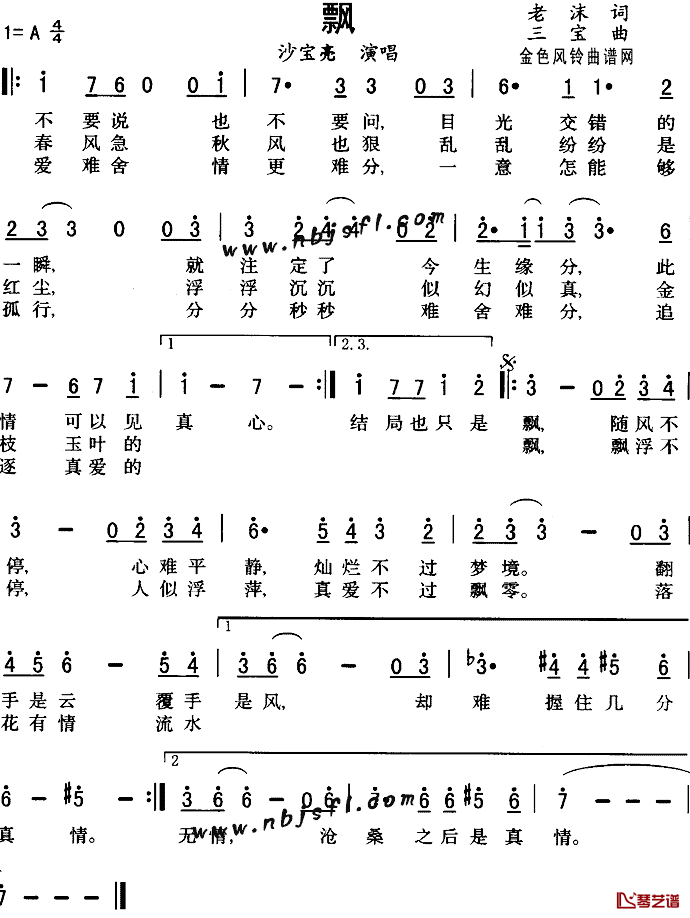 飘
老沫 词
1=A 4/4
三宝 曲
沙宝亮 演唱
金色风铃曲谱网
不要说 也不要问, 目光交错的
春风急 秋风也狠 乱乱纷纷是
爱难舍 情更难分, 一意怎能够
www.nbjsfl.com
一瞬, 就注定了 今生缘分, 此
红尘, 浮浮沉沉 似幻似真, 金
孤行, 分分秒秒 难舍难分, 追
1
2.3.
情 可以见真心。 结局也只是飘, 随风不
枝 玉叶的 飘, 飘浮不
逐 真爱的
停, 心难平静, 灿烂不过梦境。 翻
停, 人似浮萍, 真爱不过飘零。 落
1
手是云 覆手是风, 却难握住几分
花有情 流水
2
真情。 无情, 沧桑之后是真情。
www.nbjsfl.com
琴艺谱